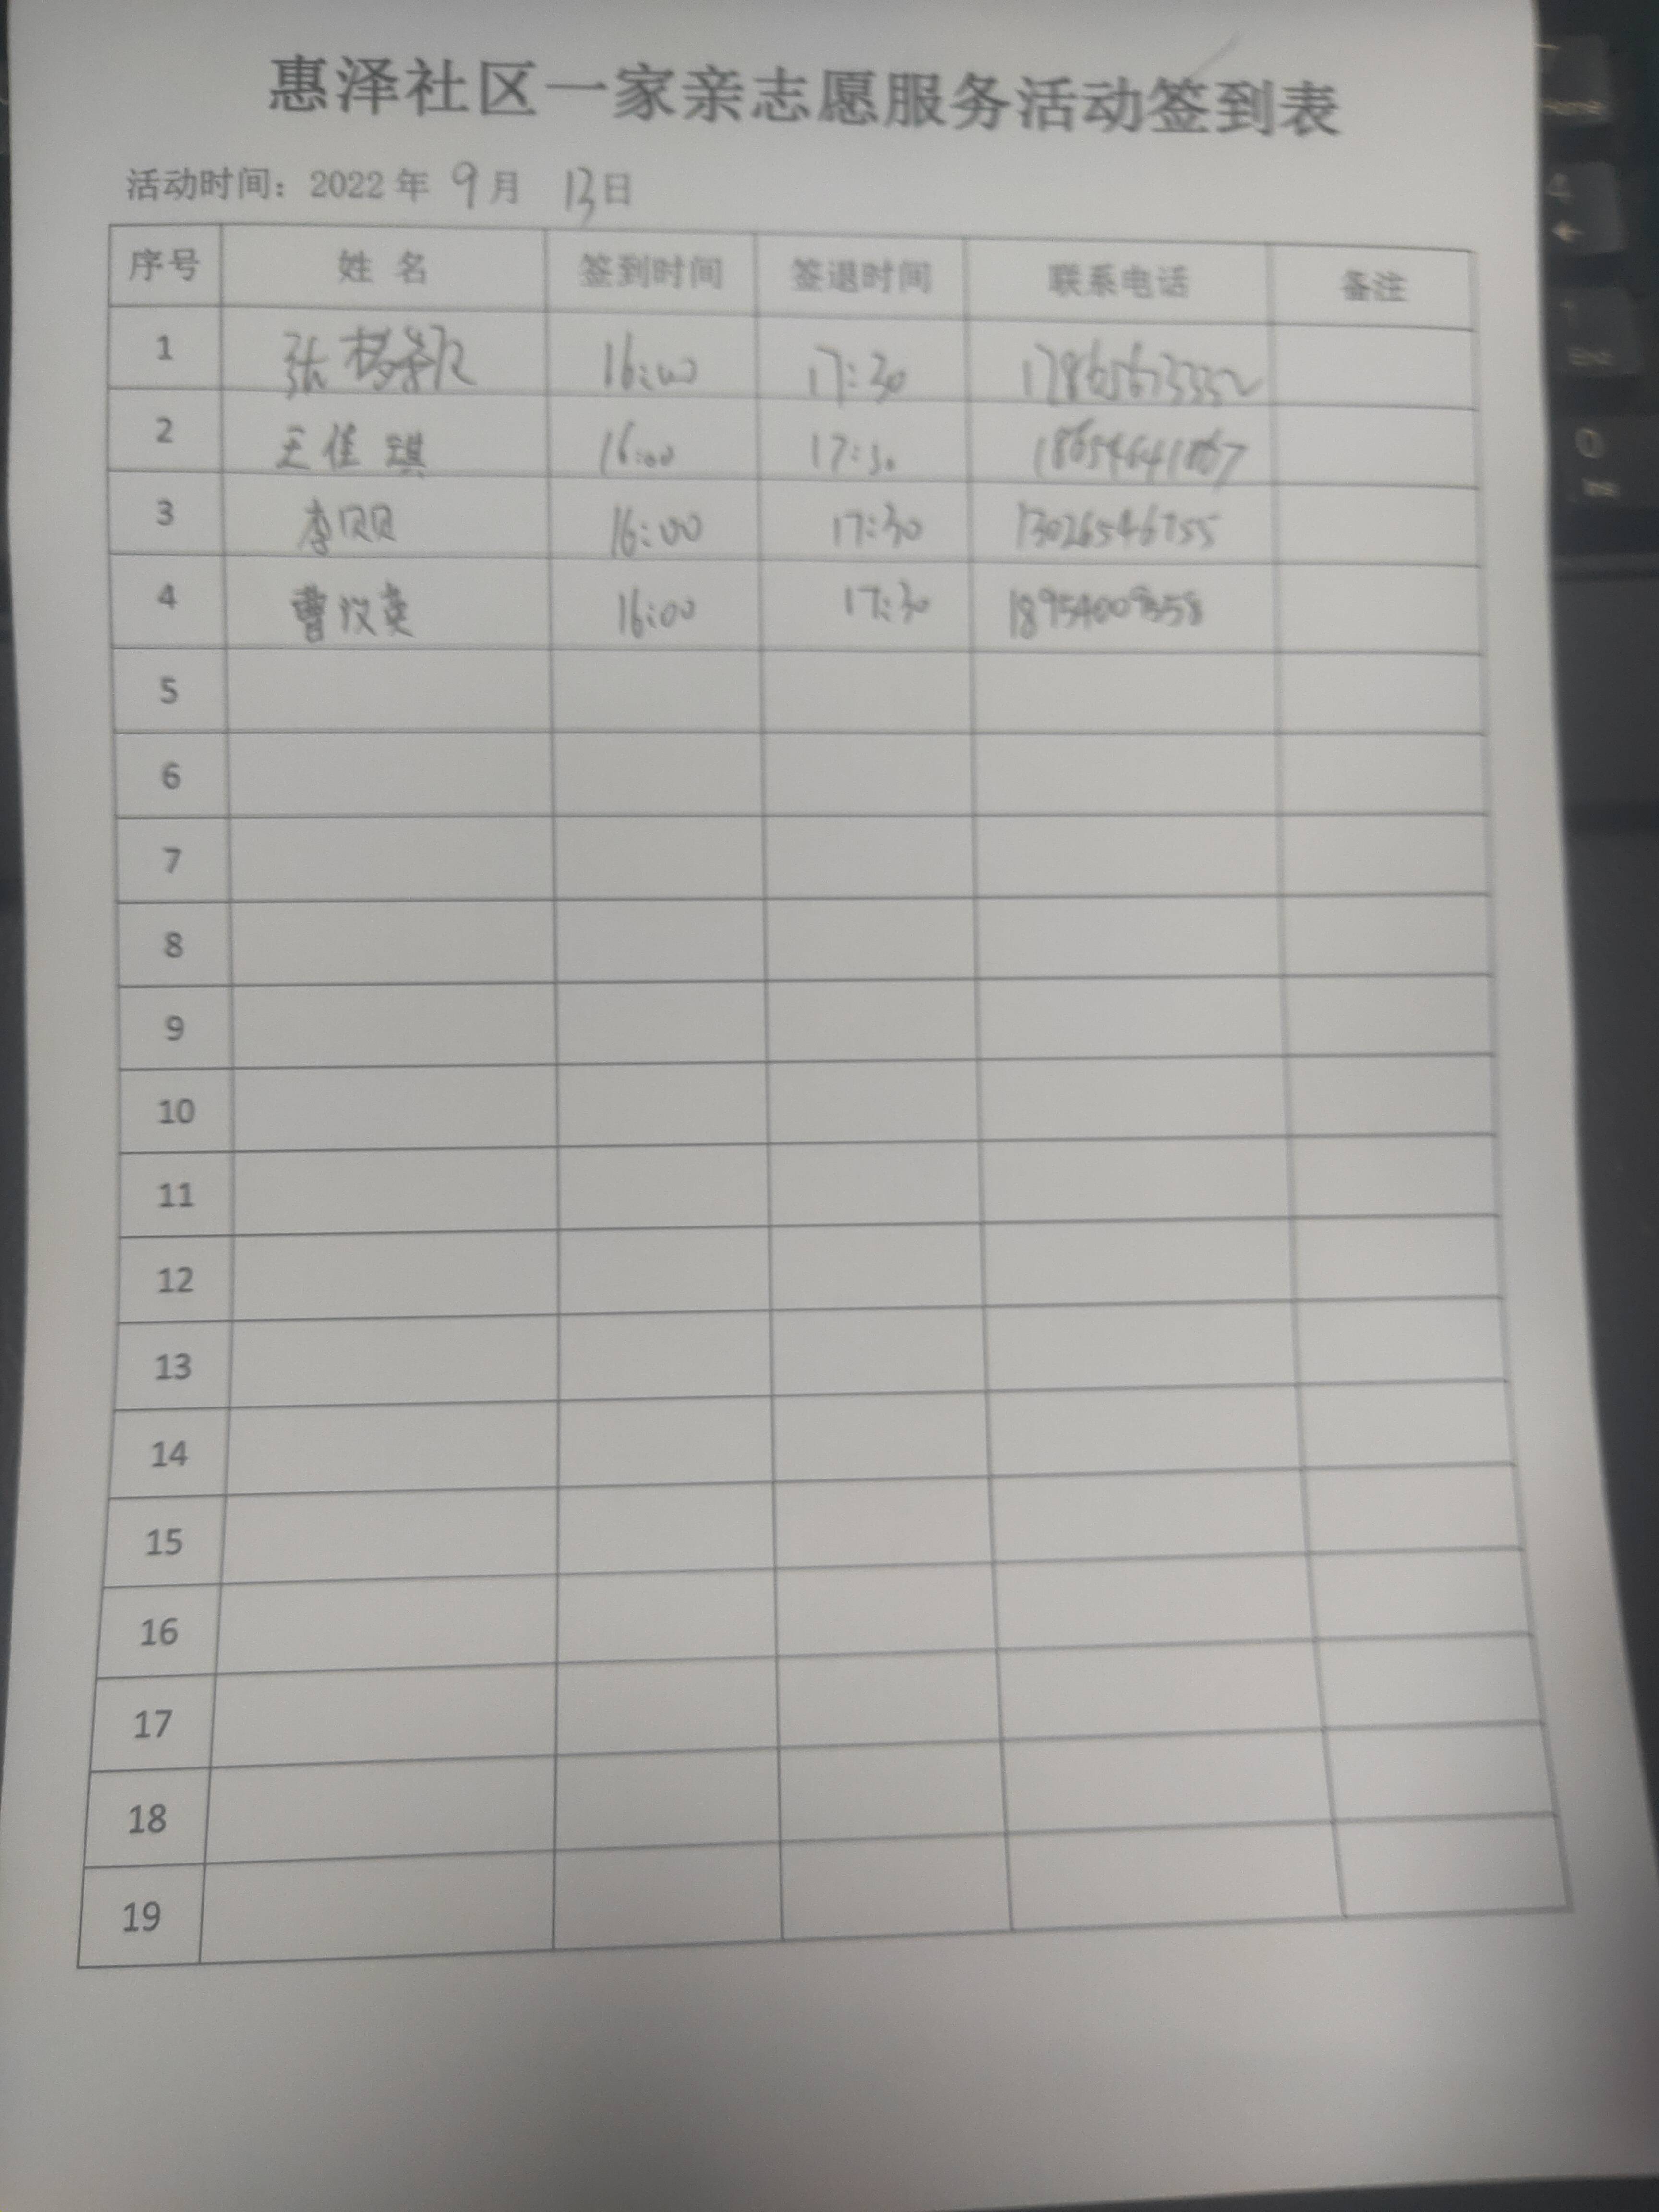 惠泽社区一家亲志愿服务活动签到表
活动时间：2022 年 9 月 13 日
序号 姓 名 签到时间 签退时间 联系电话 备注
1 张 16:00 17:30
2 王佳琪 16:00 17:30
3 李贝贝 16:00 17:30 13026546755
4 曹 16:00 17:30
5
6
7
8
9
10
11
12
13
14
15
16
17
18
19